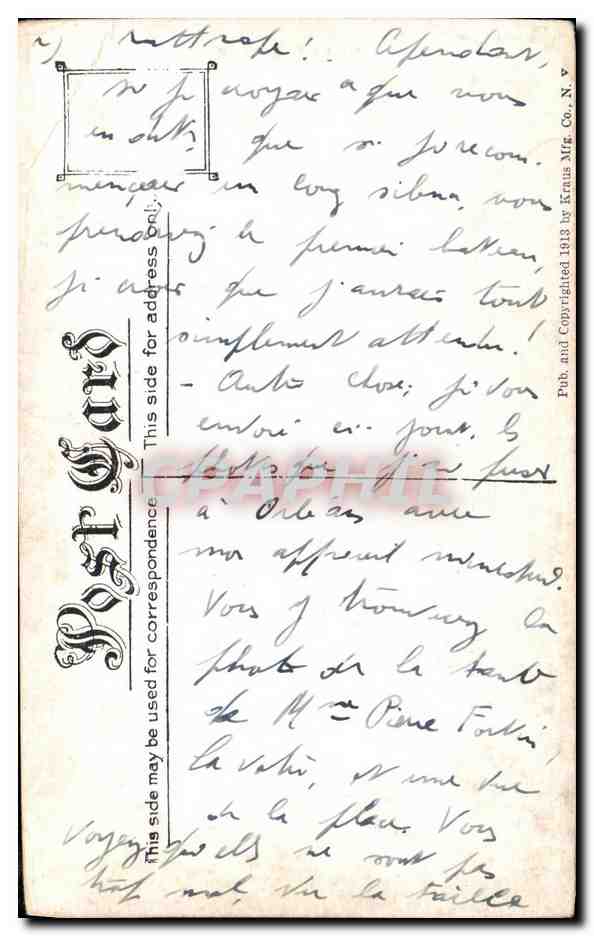 2) rattrape! Cependant,
si je croyais que vous
que si je recom-
mençais un long silence, vous
prendriez le premier bateau,
je crois que j'aurais tout
simplement attendu!
- Autre chose; je vous
envoie ci-joint, les
photos que j'ai
à Orléans avec
mon appareil minuscule.
Vous y trouverez la
photo de la tante
de Mme Pierre Fortin,
la vôtre, et une vue
de la place. Vous
voyez qu'elles ne sont pas
trop mal, vu la taille
Post Card
This side may be used for correspondence
This side for address only.
Pub. and Copyrighted 1913 by Kraus Mfg. Co., N. Y
CPAPHIL